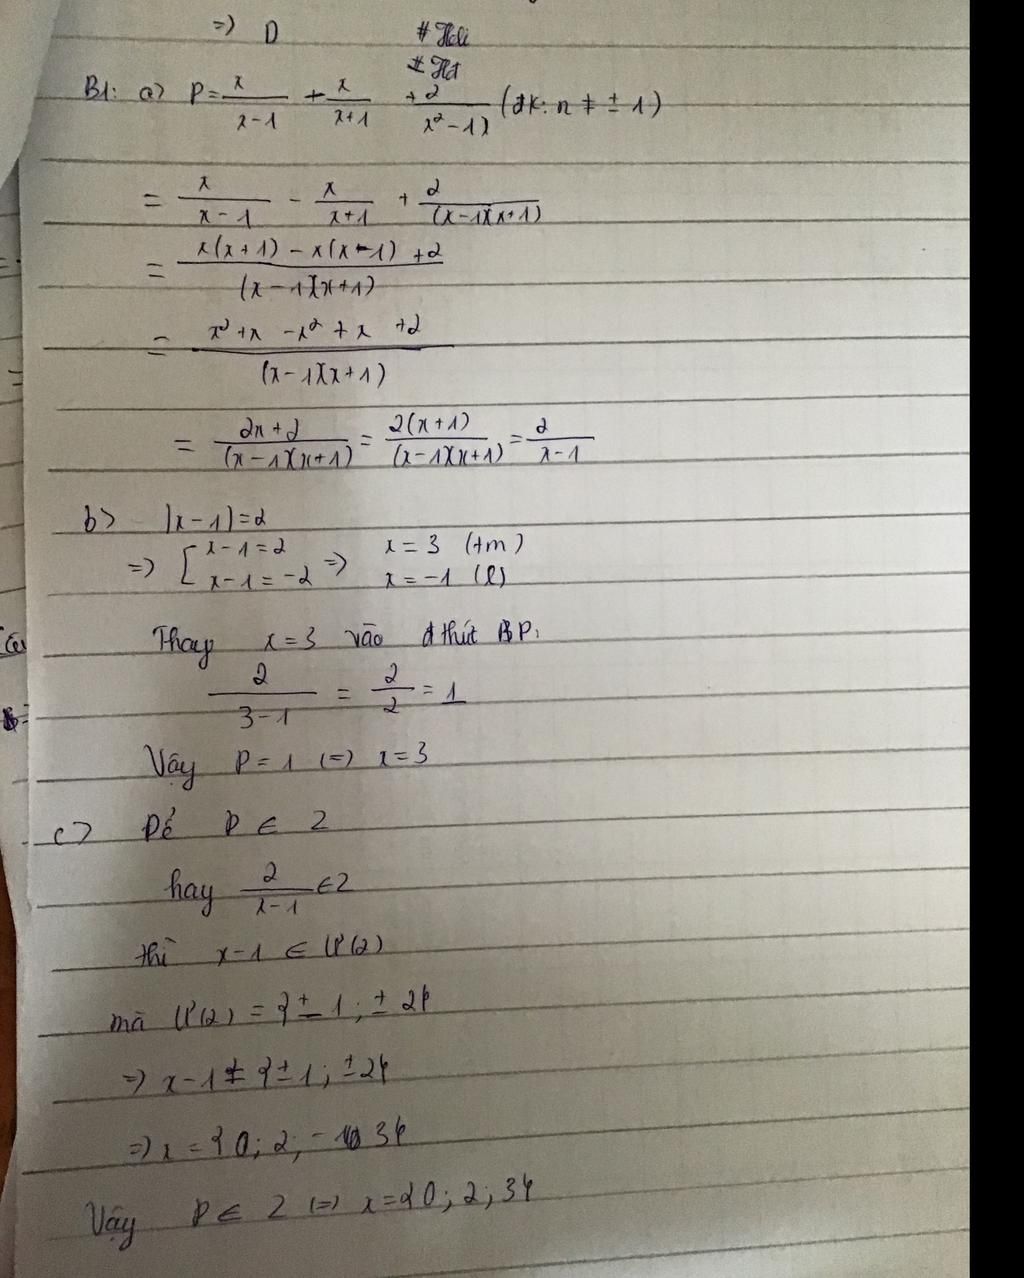 => D # Heli
# Hđ
B1: a> P = x/(x-1) + x/(x+1) + 2/(x²-1) (đk: n ≠ ± 1)
= x/(x-1) - x/(x+1) + 2/((x-1)(x+1))
= (x(x+1) - x(x-1) +2)/((x-1)(x+1))
= (x²+x -x² + x +2)/((x-1)(x+1))
= (2x+2)/((x-1)(x+1)) = 2(x+1)/((x-1)(x+1)) = 2/(x-1)
b> |x-1|=2
=> [ x-1=2 => x=3 (tm)
x-1=-2 x=-1 (l)
Thay x=3 vào đ thứt P:
2/(3-1) = 2/2 = 1
Vậy P=1 (=) x=3
c> Để P ∈ Z
hay 2/(x-1) ∈ Z
thì x-1 ∈ Ư(2)
mà Ư(2) = {± 1; ± 2}
=> x-1 ≠ {±1; ±2}
=> x = {0; 2; - 3}
Vậy P ∈ Z (=) x={0; 2; 3}